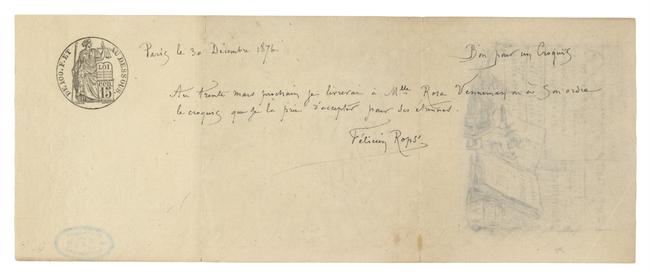 DE 100 F. ET AU DESSOUS.
LOI
15
Paris le 30 Décembre 1876
Bon pour un Croquis
Au trente mars prochain je livrerai à Mlle Rosa Venneman ou à son ordre
le croquis que je la prie d'accepter pour ses étrennes.
Félicien Rops